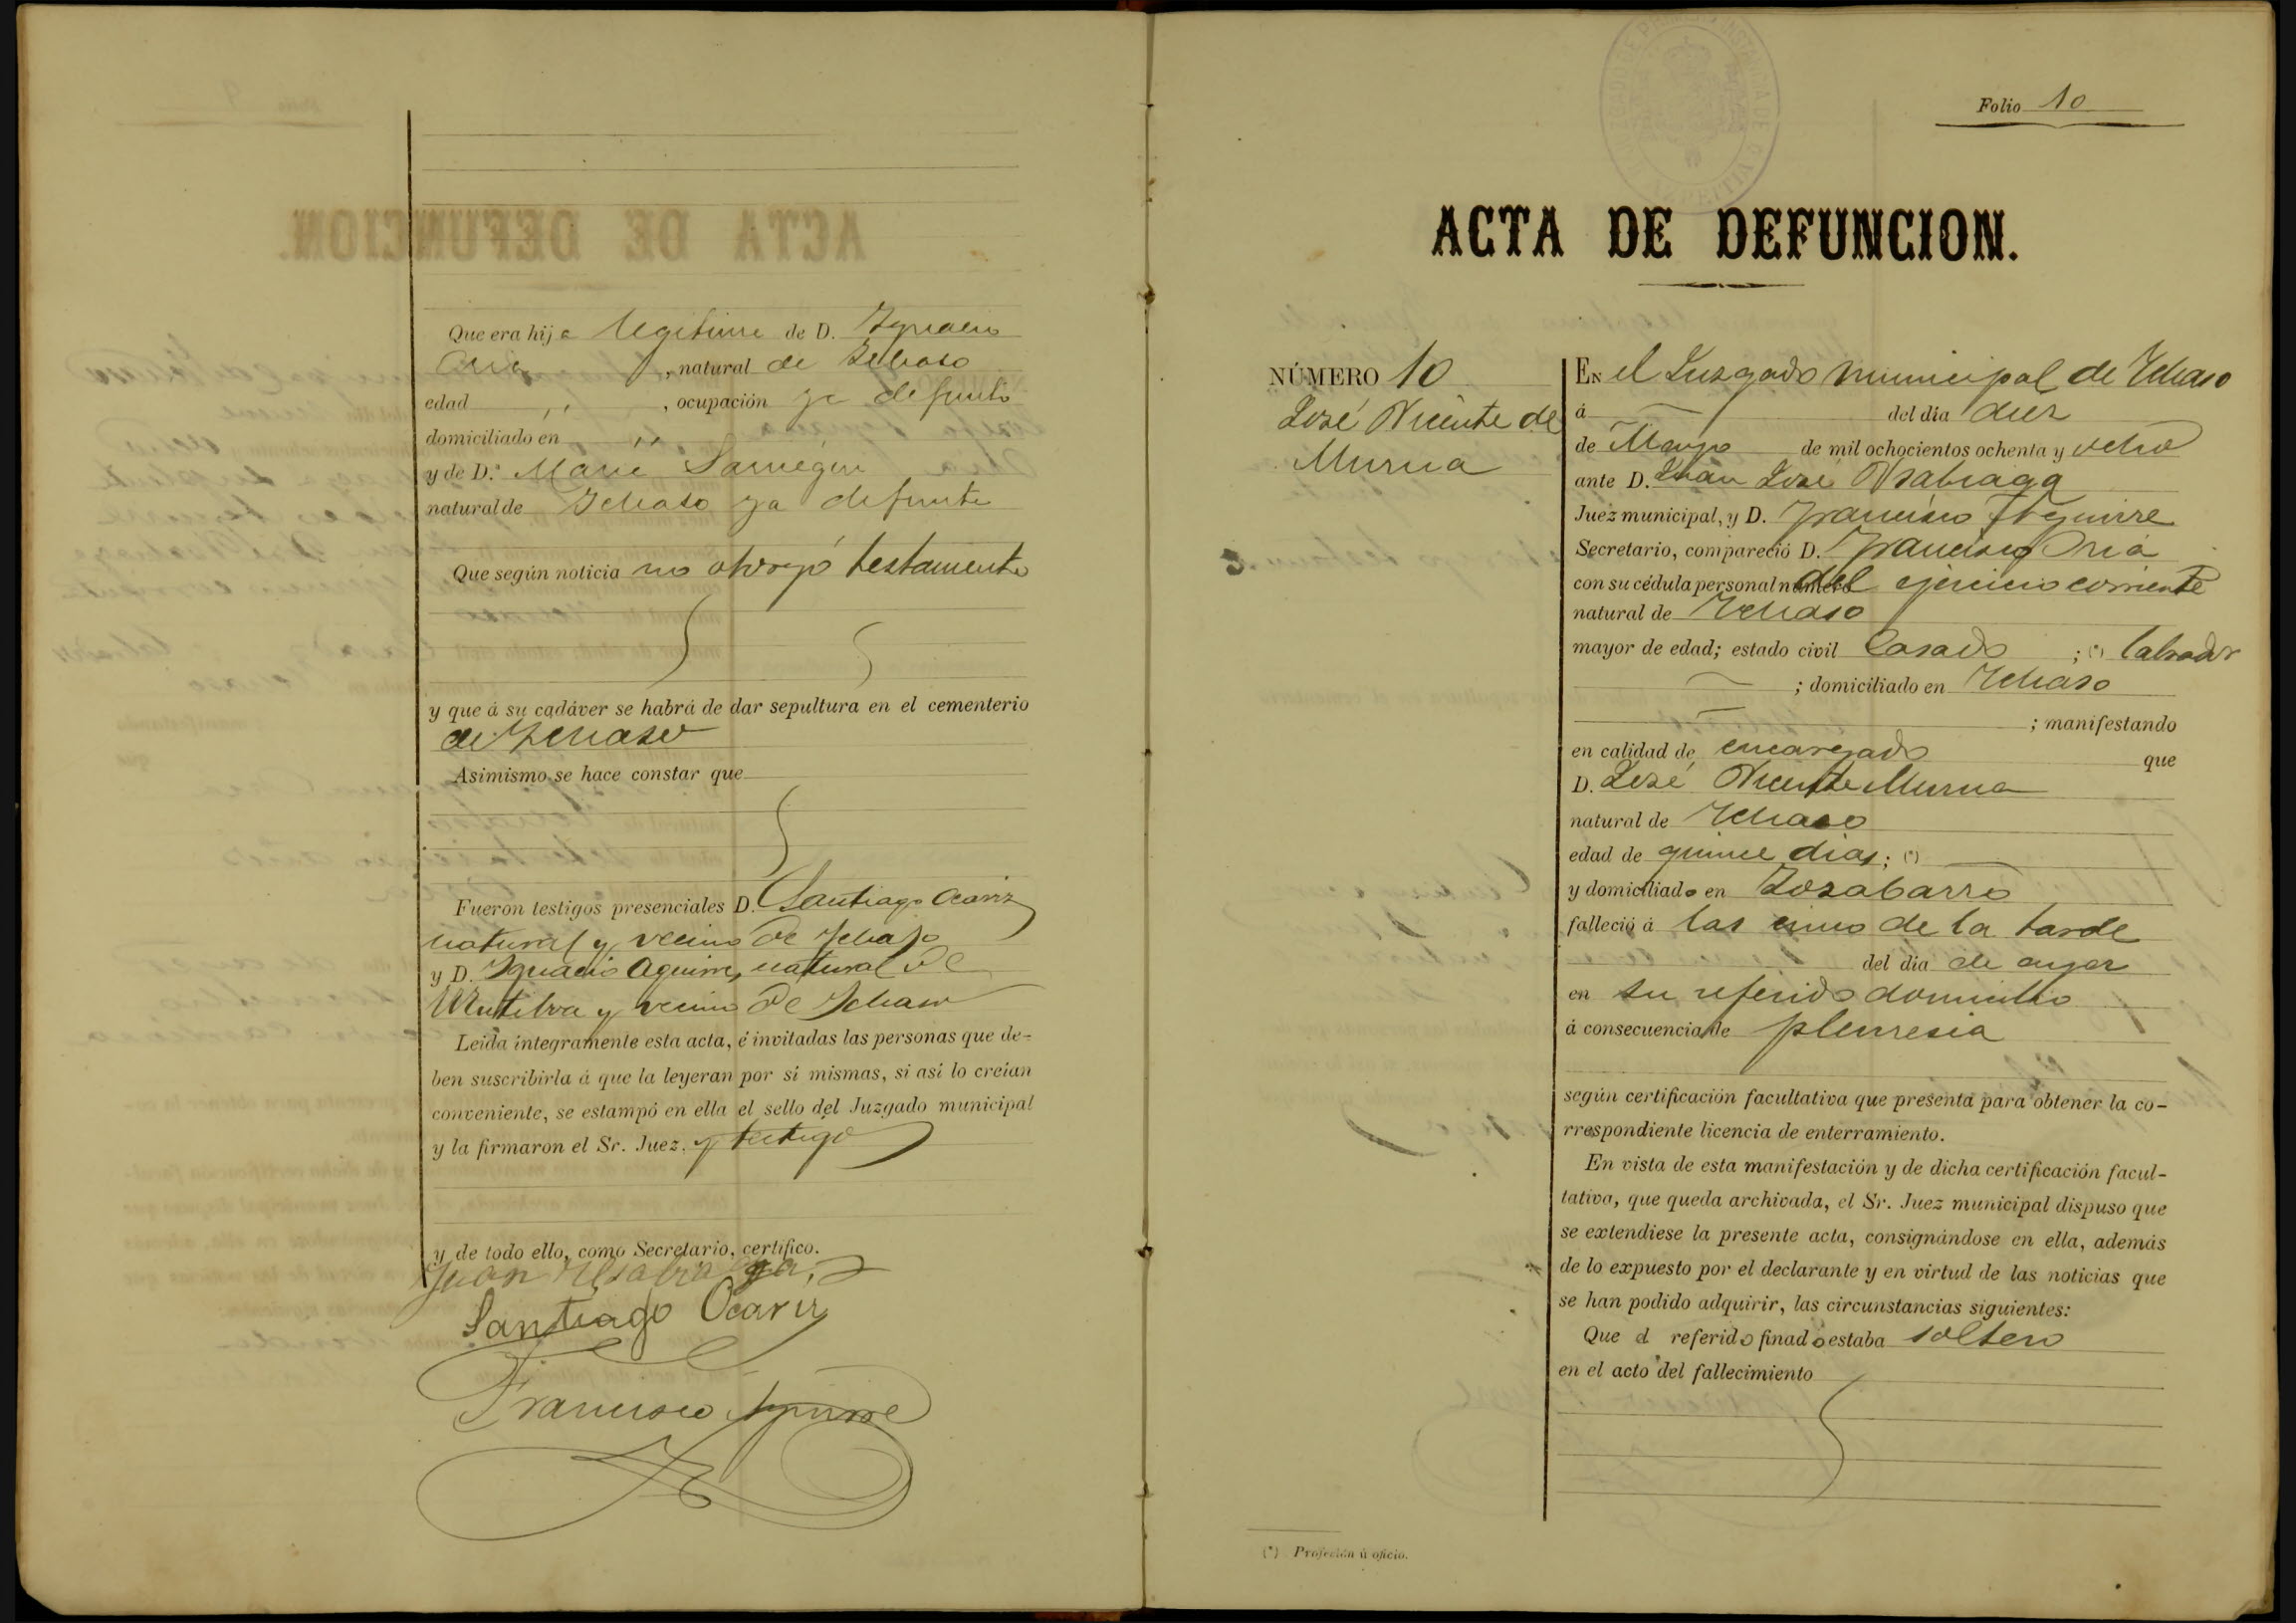 Que era hija legitima de D. Ygnacio
Oria, natural de Ychaso
edad ,, , ocupación ya defunto
domiciliado en ,,
y de D.ª Maria Sarriegui
natural de Ychaso ya defunta
Que según noticia no otorgó testamento
y que á su cadáver se habrá de dar sepultura en el cementerio
de Ychaso
Asimismo se hace constar que
Fueron testigos presenciales D. Santiago Ocariz
natural y vecino de Ychaso
y D. Ygnacio Aguirre, natural de
Mutiloa y vecino de Ychaso
Leída íntegramente esta acta, é invitadas las personas que de-
ben suscribirla á que la leyeran por sí mismas, si así lo creían
conveniente, se estampó en ella el sello del Juzgado municipal
y la firmaron el Sr. Juez, y testigo
y de todo ello, como Secretario, certifico.
Juan
Santiago Ocariz
Francisco Aguirre
Folio 10
ACTA DE DEFUNCION.
NÚMERO 10
José Vicente de
Murua
En el Juzgado municipal de Ychaso
á del día diez
de Mayo de mil ochocientos ochenta y ocho
ante D. Juan José
Juez municipal, y D. Francisco Aguirre
Secretario, compareció D. Francisco Oria
con su cédula personal número del ejercicio corriente
natural de Ychaso
mayor de edad; estado civil Casado ; (*) labrador
; domiciliado en Ychaso
; manifestando
en calidad de encargado que
D. José Vicente Murua
natural de Ychaso
edad de quince dias; (*)
y domiciliado en
falleció á las cinco de la tarde
del día de ayer
en su referido domicilio
á consecuencia de pleuresia
según certificación facultativa que presenta para obtener la co-
rrespondiente licencia de enterramiento.
En vista de esta manifestación y de dicha certificación facul-
tativa, que queda archivada, el Sr. Juez municipal dispuso que
se extendiese la presente acta, consignándose en ella, además
de lo expuesto por el declarante y en virtud de las noticias que
se han podido adquirir, las circunstancias siguientes:
Que el referido finado estaba soltero
en el acto del fallecimiento
(*) Profesión ú oficio.